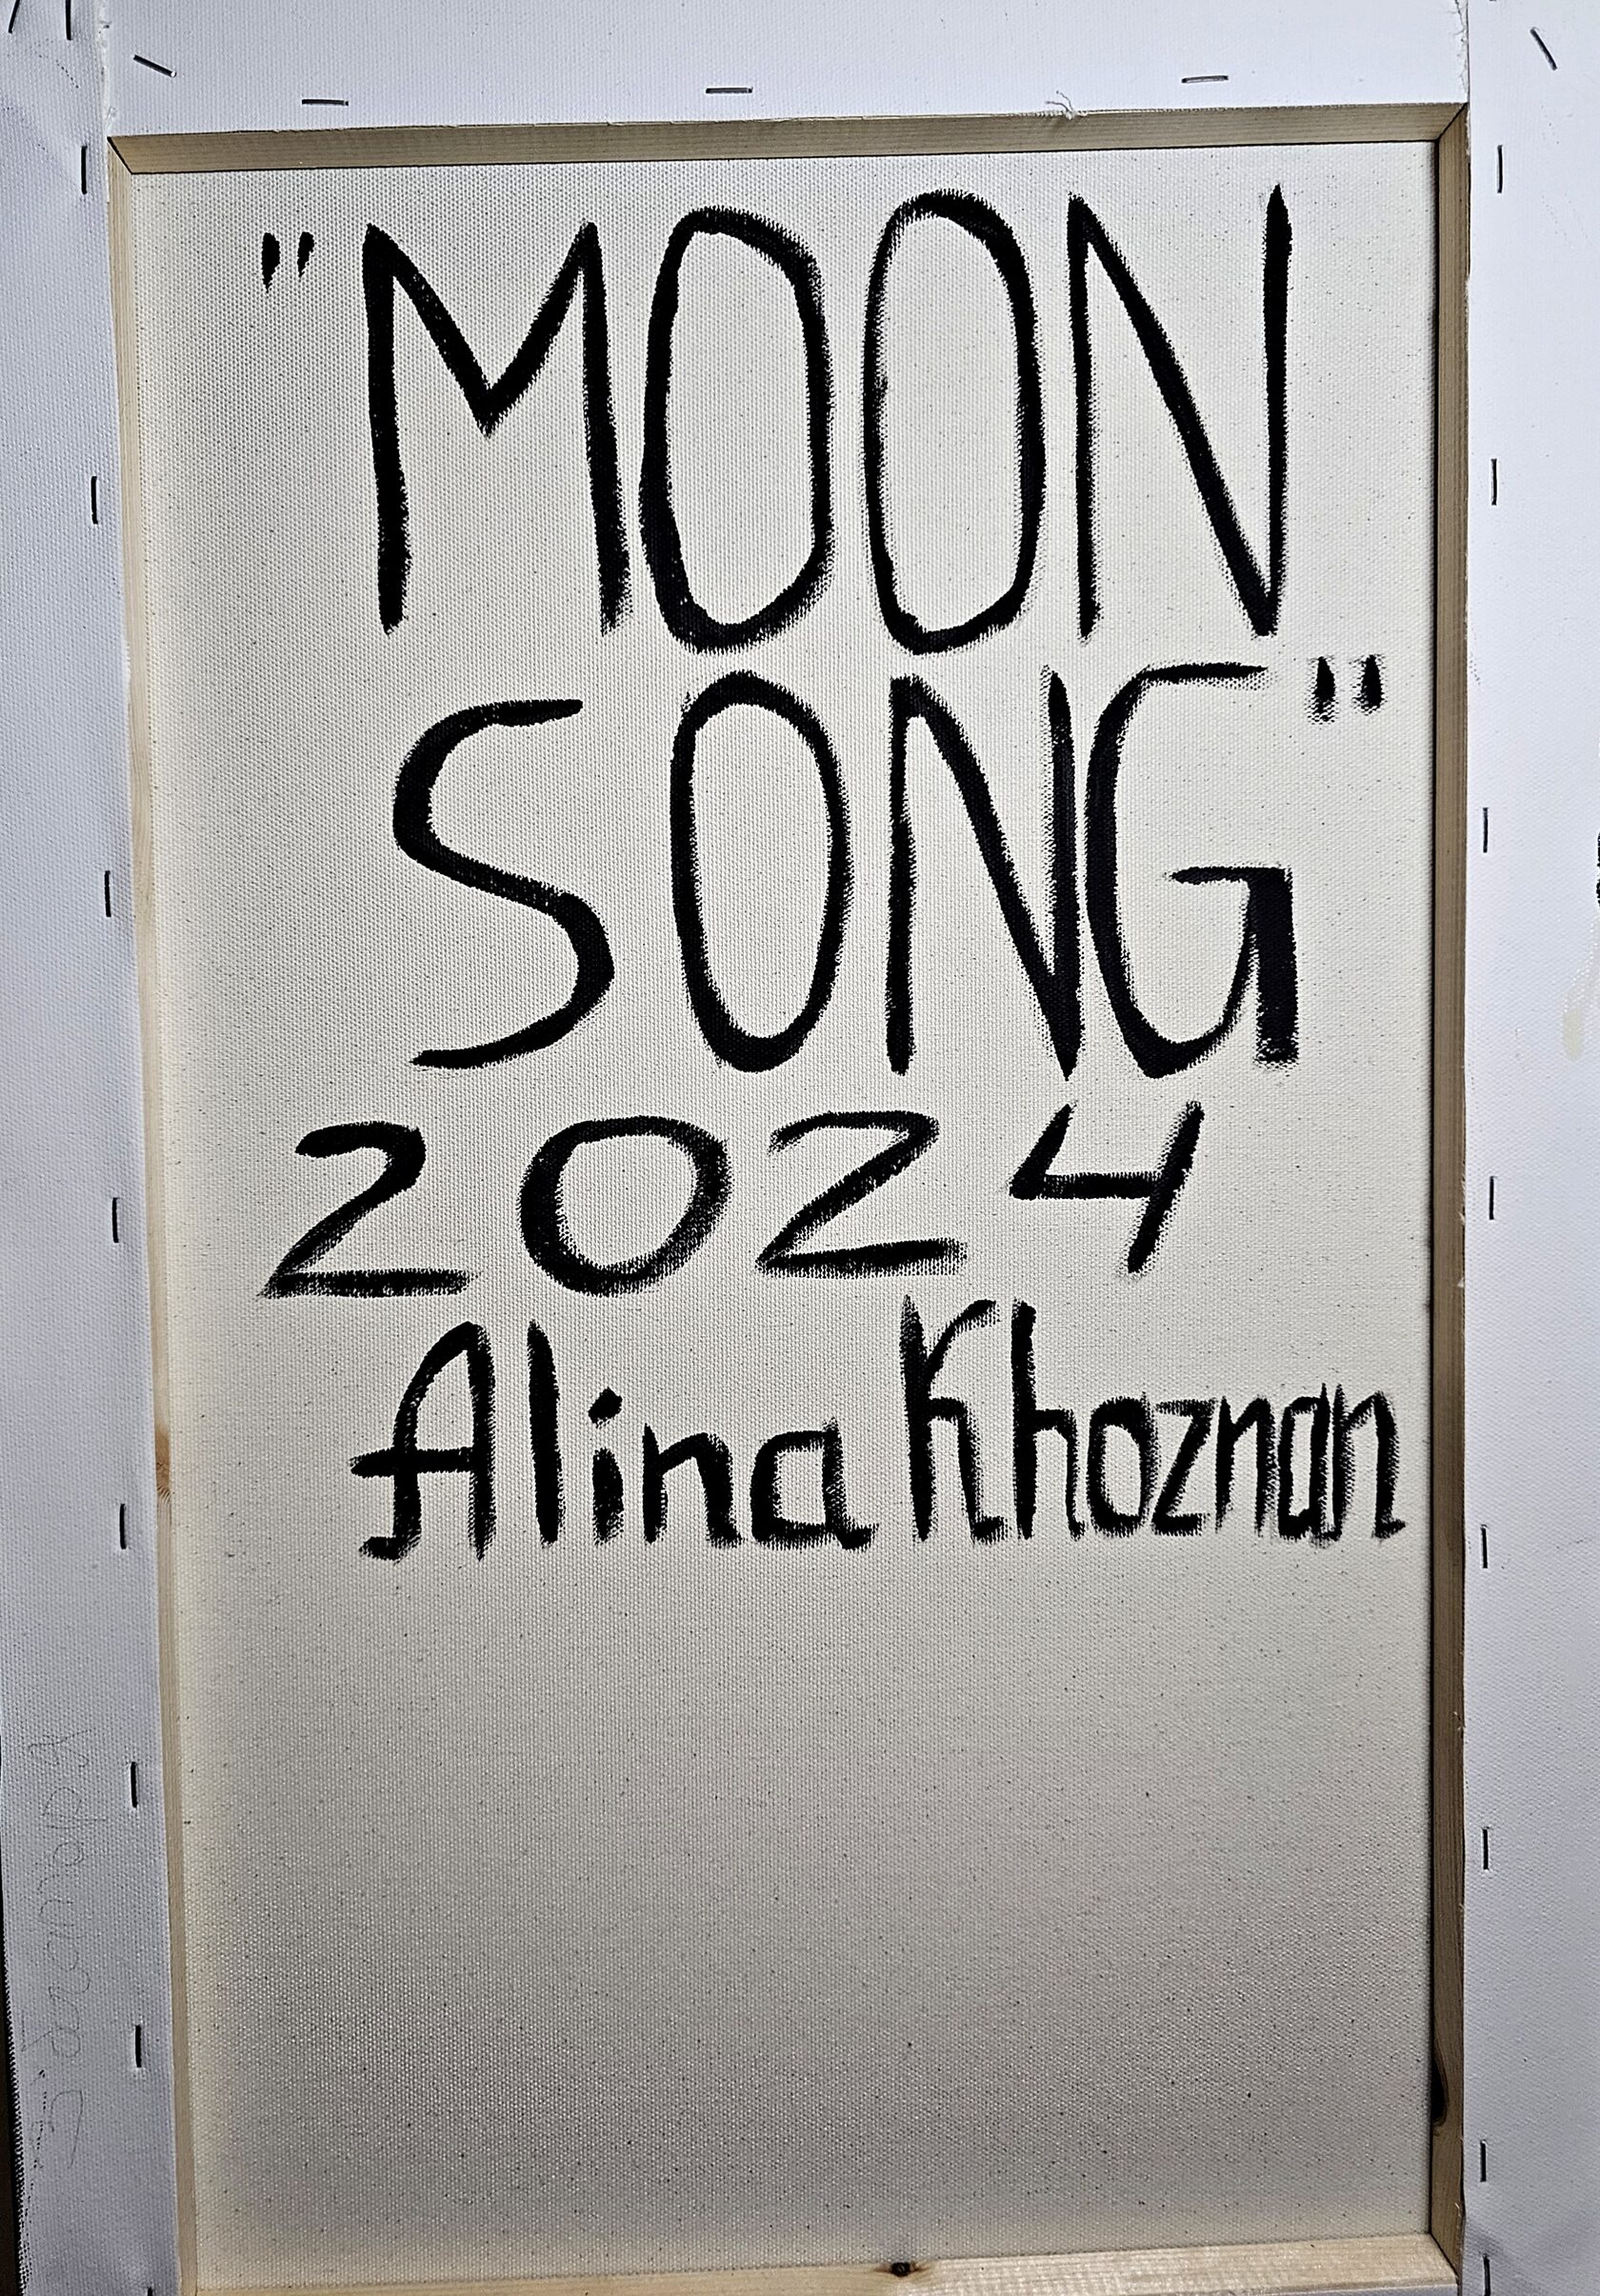 "MOON
SONG"
2024
Alina Khoznan